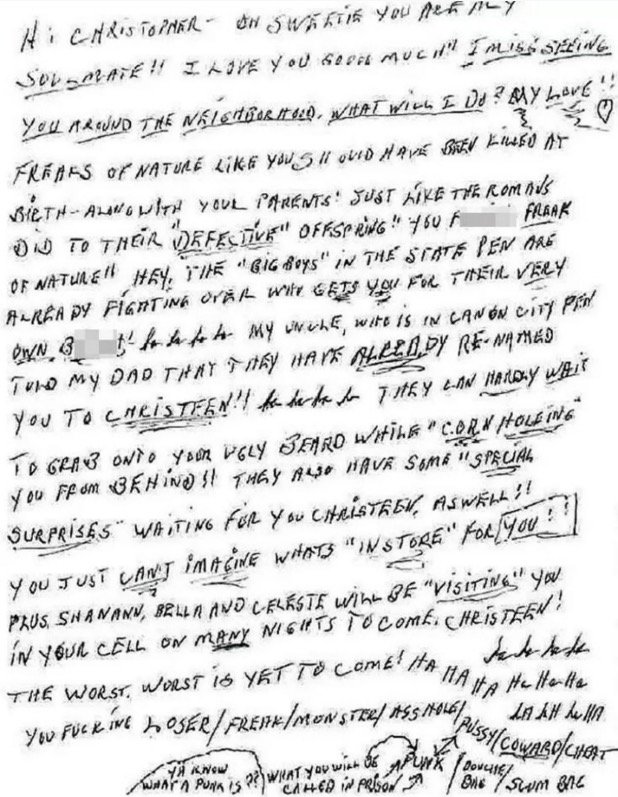 HI CHRISTOPHER- OH SWEETIE YOU ARE MY
SOULMATE!! I LOVE YOU SOOOO MUCH!! I MISS SEEING
YOU AROUND THE NEIGHBORHOOD. WHAT WILL I DO? MY LOVE!!
FREAKS OF NATURE LIKE YOU SHOULD HAVE BEEN KILLED AT
BIRTH-ALONG WITH YOUR PARENTS! JUST LIKE THE ROMANS
DID TO THEIR "DEFECTIVE" OFFSPRING!! YOU F FREAK
OF NATURE!! HEY, THE "BIG BOYS" IN THE STATE PEN ARE
ALREADY FIGHTING OVER WHO GETS YOU FOR THEIR VERY
OWN B ! ha ha ha ha MY UNCLE, WHO IS IN CANON CITY PEN
TOLD MY DAD THAT THEY HAVE ALREADY RE-NAMED
YOU TO CHRISTEEN!! ha ha ha ha THEY CAN HARDLY WAIT
TO GRAB ONTO YOUR UGLY BEARD WHILE "CORN HOLEING"
YOU FROM BEHIND!! THEY ALSO HAVE SOME "SPECIAL
SURPRISES" WAITING FOR YOU CHRISTEEN, ASWELL!!
YOU JUST CAN'T IMAGINE WHATS "IN STORE" FOR YOU!!
PLUS, SHANANN, BELLA AND CELESTE WILL BE "VISITING" YOU
IN YOUR CELL ON MANY NIGHTS TO COME, CHRISTEEN!
THE WORST, WORST IS YET TO COME! HA HA HA Ha Ha Ha
ha ha ha ha
YOU FUCKING LOSER/FREAK/MONSTER/ASSHOLE/
PUSSY/COWARD/CHEAT
/DOUCHE BAG/SCUM BAG
YA KNOW WHAT A PUNK IS?? WHAT YOU WILL BE CALLED IN PRISON A PUNK